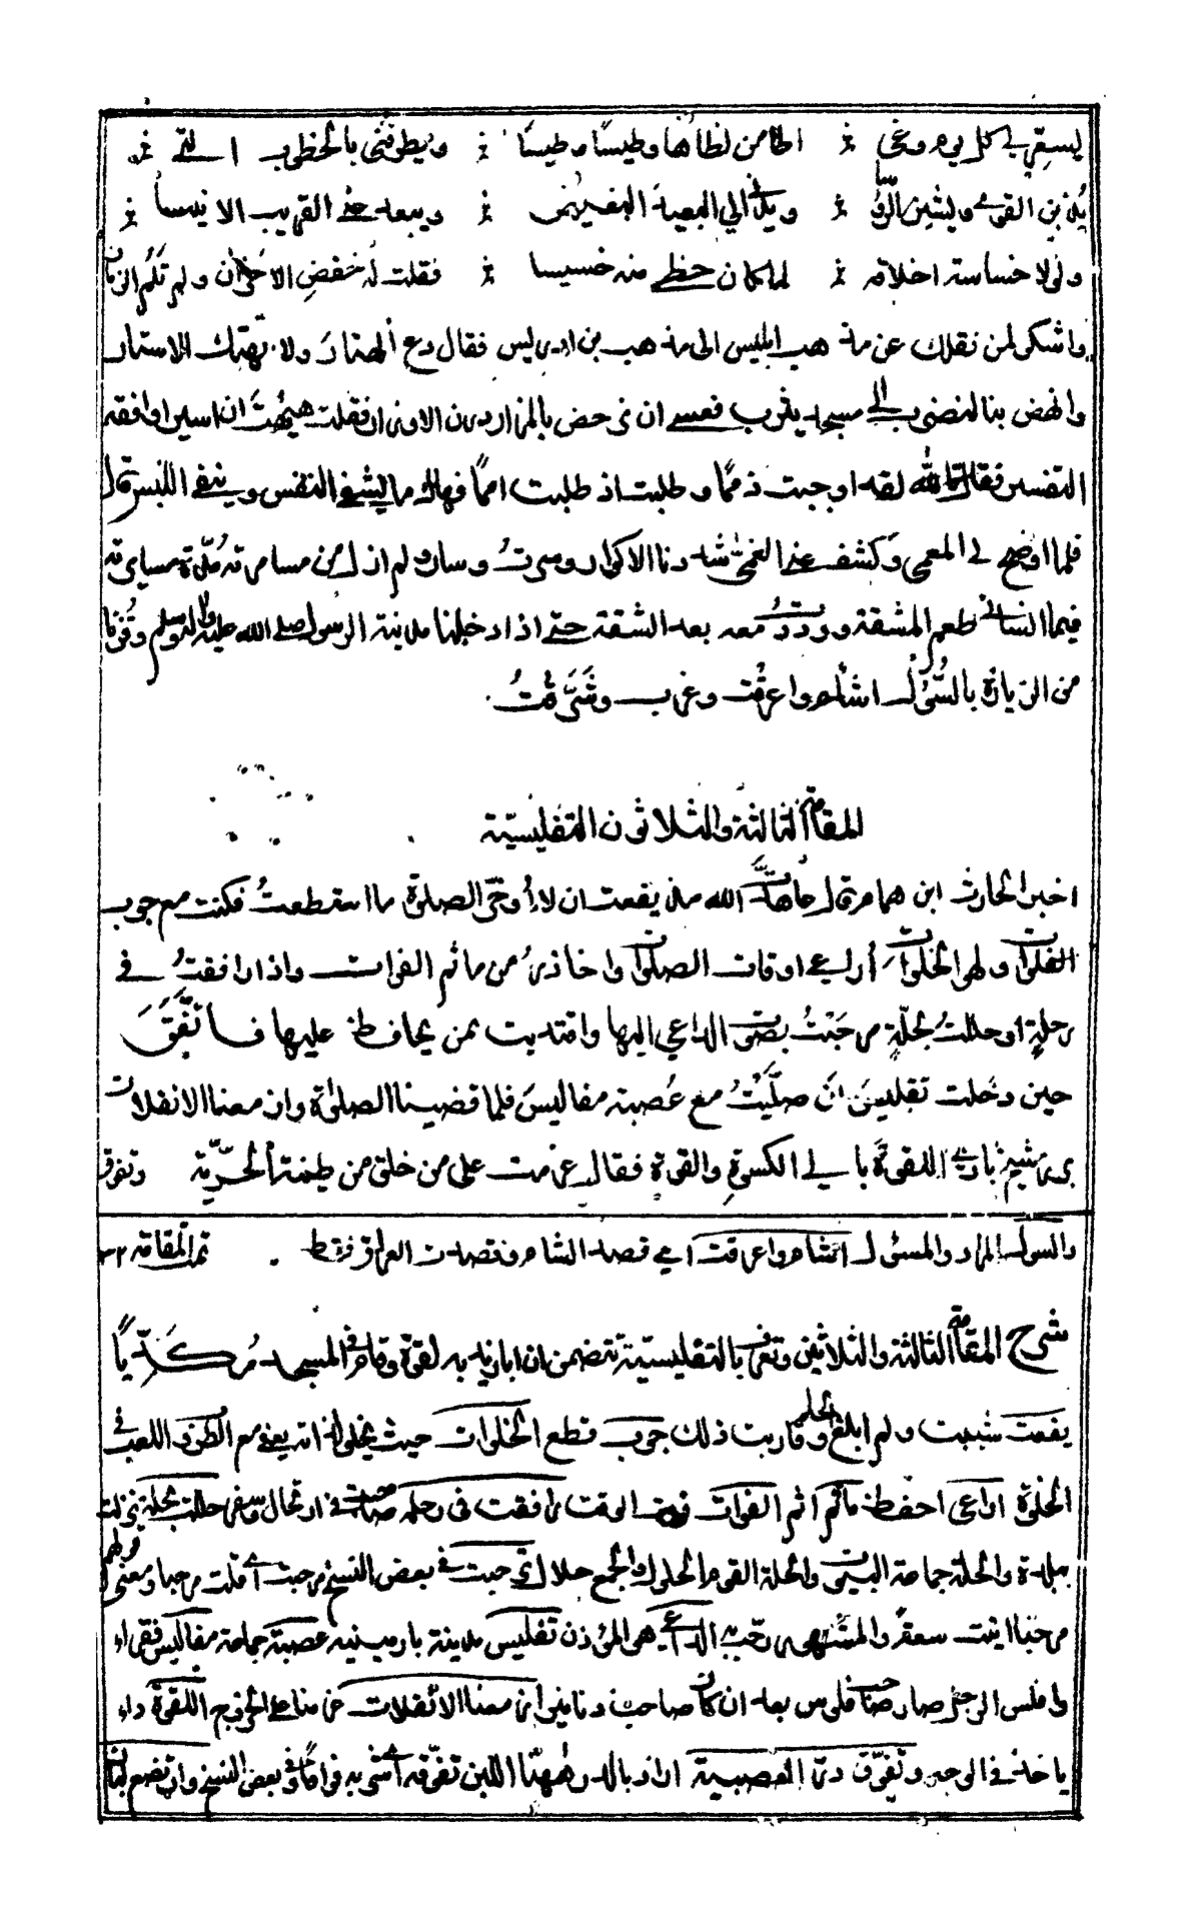 يسعر لي كل يوم وغى ⁂ اطا من لظاها وطيسا وطيسا ⁂ ويطرقني بالخطوب التي ⁂
يذبن القوى ويشيبن الرؤسا ⁂ ويدني الي البعيد البغيض ⁂ ويبعد عني القريب الانيسا ⁂
ولولا خساسة اخلاقه ⁂ لما كان حظي منه خسيسا ⁂ فقلت له خفض الاحزان ولم تلم الزمان
واشكر لمن نقلك عن مذهب ابليس الى مذهب بن ادريس فقال دع الهتار ولا تهتك الاستار
وانهض بنا لنضرب الى مسجد يثرب فعسى ان نرحض بالمزار درن الاوزار فقلت هيهات ان اسير او افقه
التفسير فقال تالله لقد اوجبت ذمما وطلبت اذ طلبت امما فهاك ما يشفي النفس وينفي اللبس قال
فلما اوضح لي المعمى وكشف عني الغمى شددنا الاكوار وسرت وسار ولم ازل من مسامرته مدة مسايرته
فيما انساني طعم المشقة ووددت معه بعد الشقة حتى اذا دخلنا مدينة الرسول صلى الله عليه واله وسلم وفزنا
من الزيارة بالسؤل اشام واعرقت وغرب وشرقت
المقامة الثالثة والثلاثون التفليسية
اخبر الحارث ابن همام قال عاهدت الله مذ يفعت ان لا أوخر الصلوة ما استطعت فكنت مع جوب
الفلوات ولهو الخلوات أراعي اوقات الصلوات واحاذر من ماثم الفوات واذا رافقت في
رحلة او حللت بحلة مرحبت بصوت الداعي اليها واقتديت بمن يحافظ عليها فاتفق
حين دخلت تفليس ان صليت مع عصبة مفاليس فلما قضينا الصلاة وازمعنا الانفلات
برز شيخ بادي اللقوة بالي الكسوة والقوة فقال عزمت على من خلق من طينة الحرية وتفوق
والسول المراد والمسئول اشام واعرقت اي قصد الشام وقصدت العراق فقط . تم المقامة ٣٢
شرح المقامة الثالثة والثلاثين وتعرف بالتفليسية تتضمن ان ابا زيد به لقوة وقام في المسجد مكديا
يفعت شببت ولم ابلغ الحلم وقاربت ذلك جوب قطع الخلوات حيث يخلو لذاته يعني مع الطرف اللعب في
الخلوة اراعي احفظ ماثم اثم الفوات فوت الوقت رافقت في رحلة صاحبت في ارتحال وسفر حللت بحلة نزلت
ببلدة والحلة جماعة البيوت والحلة القوم الحلول والجمع حلال رحبت في بعض النسخ مرحبت اي قلت مرحبا ومعنى قولهم
مرحبا اتيت سعة والمشهور رحب به الداعي هو المؤذن تفليس مدينة بارمينيه عصبة جماعة مفاليس فقراء
وافلس الرجل صار صاحب فلوس بعد ان كان صاحب دنانير ازمعنا الانفلات عزمنا على الخروج اللقوة داء
ياخذ في الوجه وتفوق در العصبية اراد بالدر ههنا اللبن تفوقه اي شربه فواقا وفي بعض النسخ وارتضع لبان